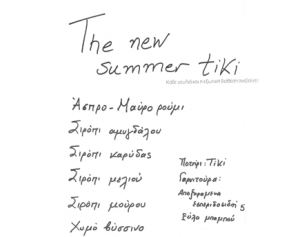 The new
summer tiki
Άσπρο-Μαύρο ρούμι
Σιρόπι αμυγδάλου
Σιρόπι καρύδας
Σιρόπι μελιού
Σιρόπι μούρου
Χυμό βύσσινο
Ποτήρι: Tiki
Γαρνιτούρα:
Αποξηραμένα
εσπεριδοειδή 5
Ξύλο μπαμπού